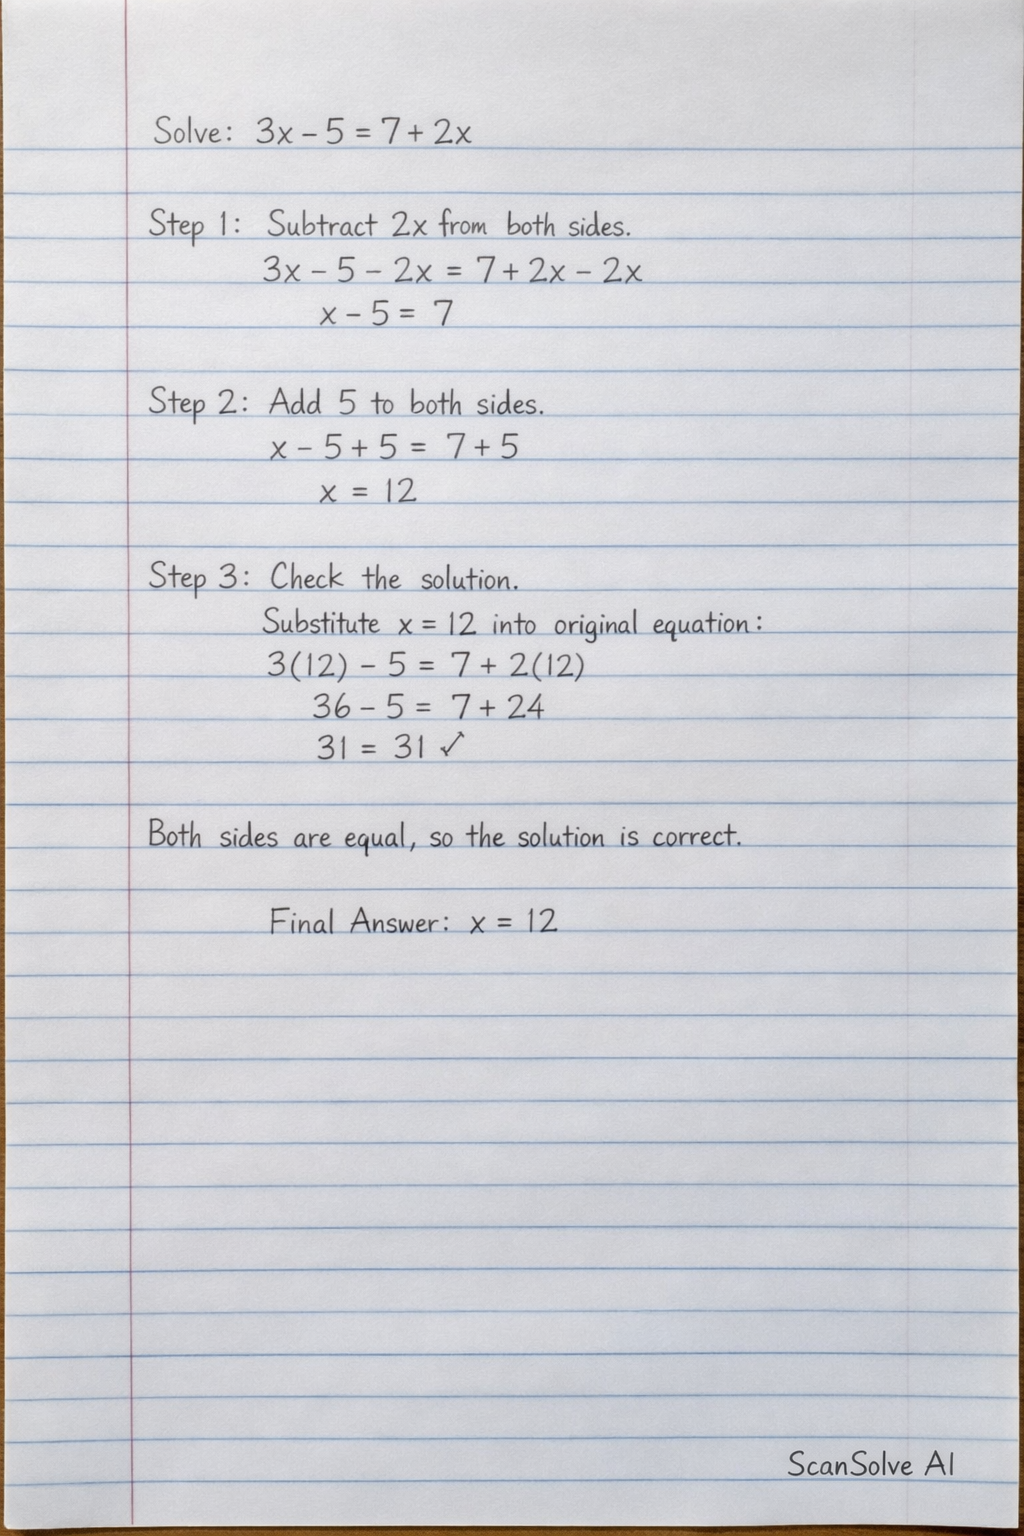 Solve: 3x – 5 = 7 + 2x
Step 1: Subtract 2x from both sides.
3x – 5 – 2x = 7 + 2x – 2x
x – 5 = 7
Step 2: Add 5 to both sides.
x – 5 + 5 = 7 + 5
x = 12
Step 3: Check the solution.
Substitute x = 12 into original equation:
3(12) – 5 = 7 + 2(12)
36 – 5 = 7 + 24
31 = 31 ✓
Both sides are equal, so the solution is correct.
Final Answer: x = 12
ScanSolve AI